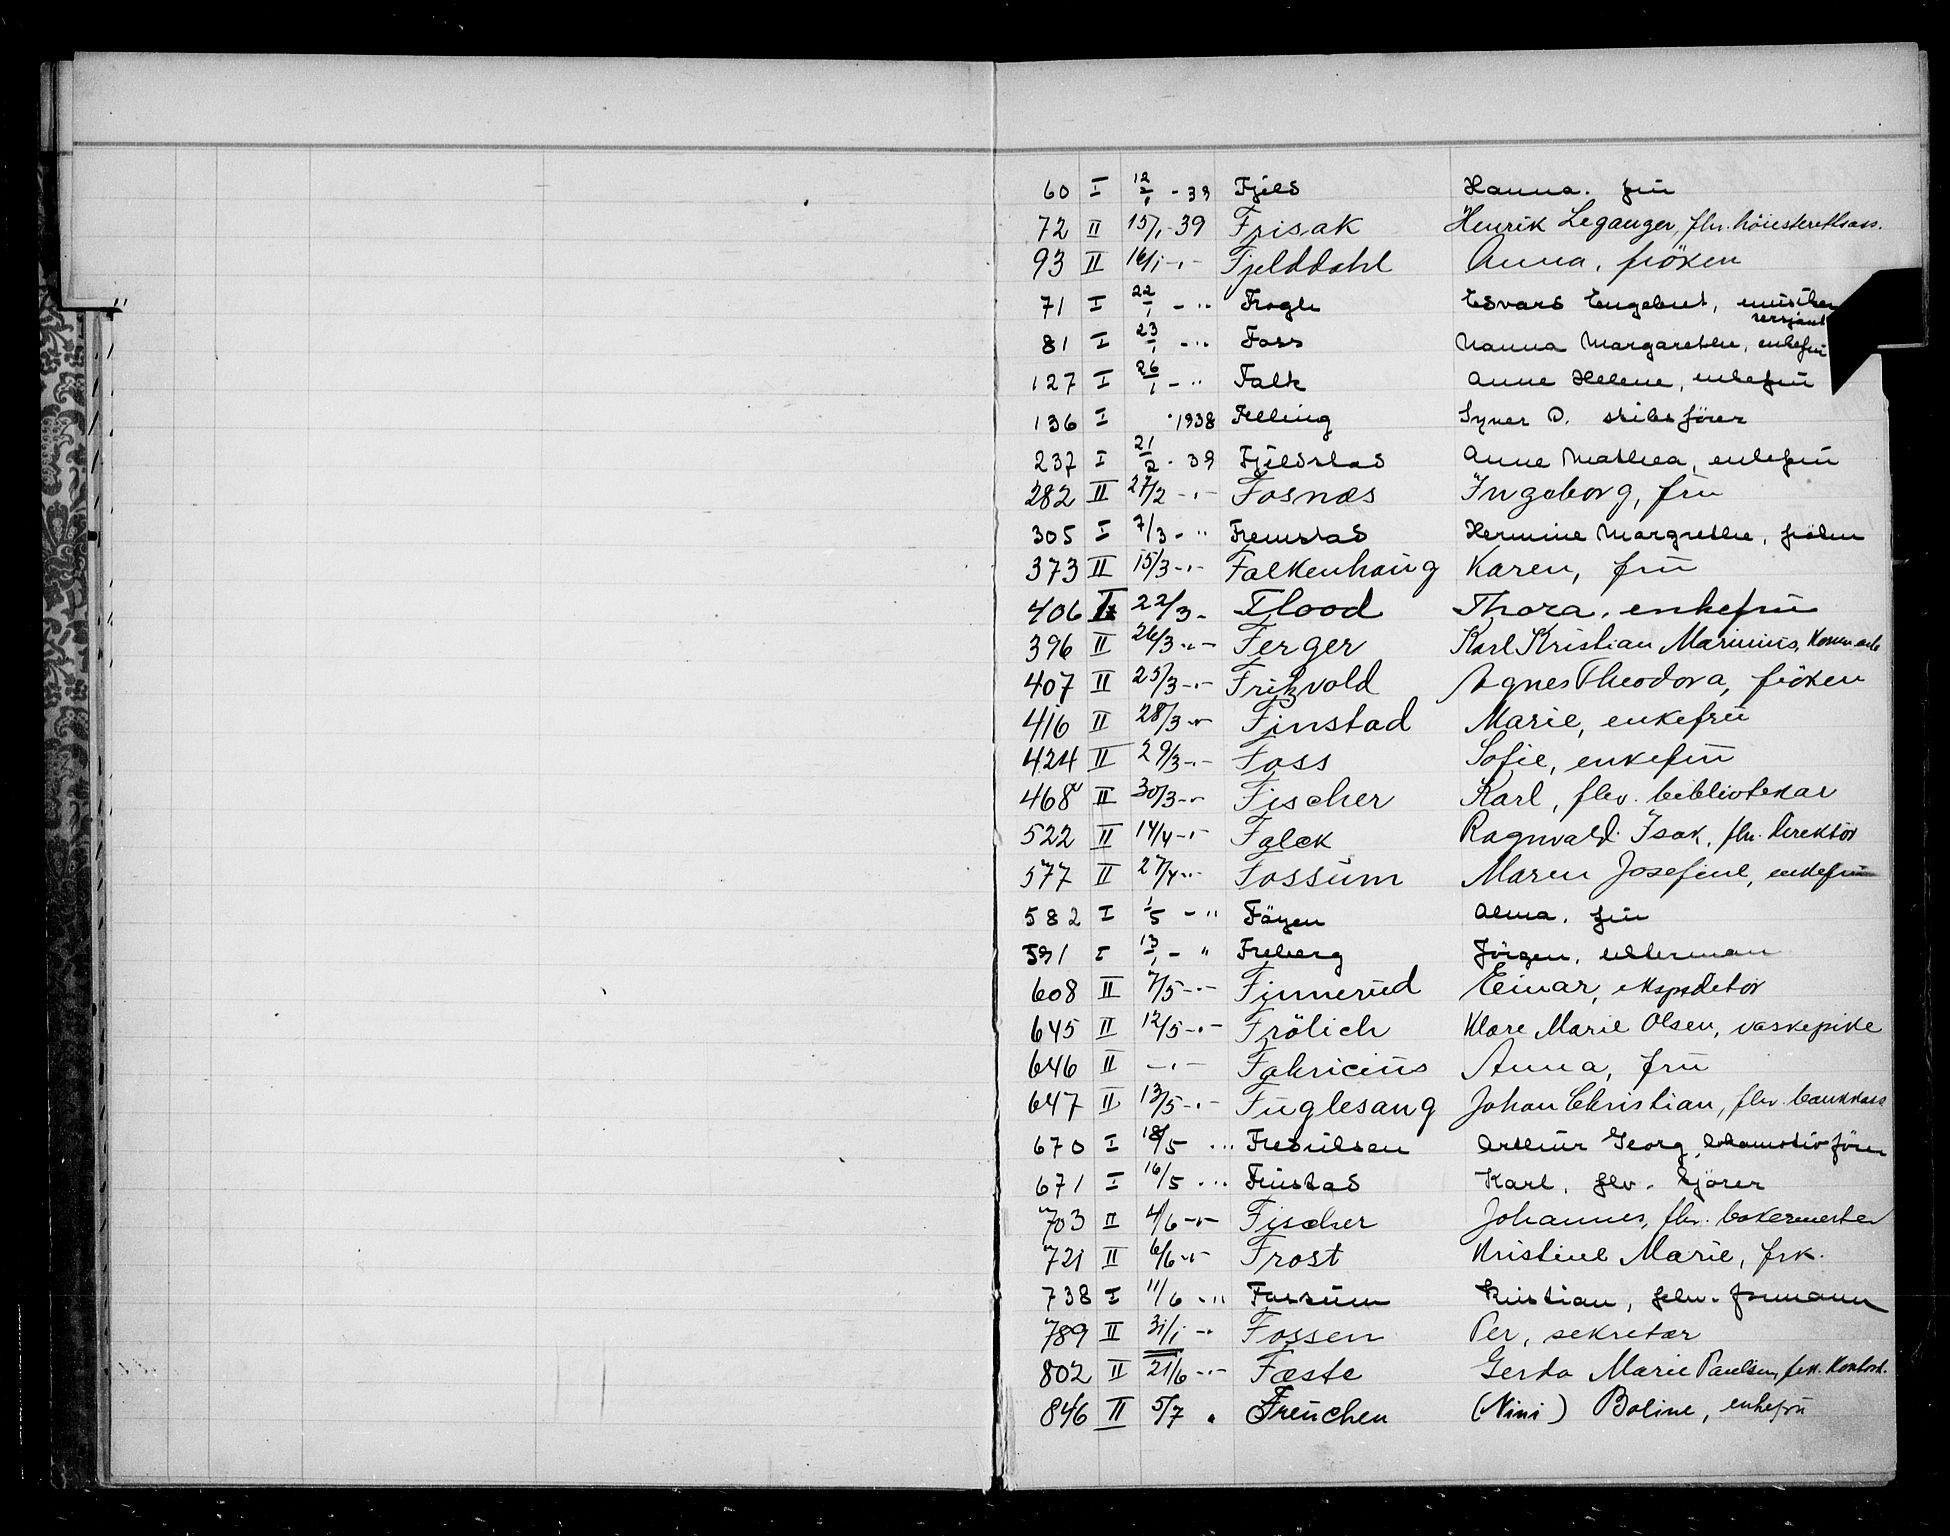 60 I 12/1 - 39 Fjeld Hanna. fru
72 II 15/1 - 39 Frisak Henrik Leganger, fhv. höiesterettsass.
93 II 16/1 - " - Fjelddahl Anna, fröken
71 I 22/1 - " Frogh Edvard Engebret, musiker sersjant
81 I 23/1 - " Foss Nanna Margarethe, enkefru
127 I 26/1 - " Falk Anne Helene, enkefru
136 I 1938 Felling Syver O. skibsförer
237 I 21/2 - 39 Fjeldstad Anne Mathea, enkefru
282 II 27/2 - " - Fosnæs Ingeborg, fru
305 I 7/3 - " Fremstad Hermine Margrethe, fröken
373 II 15/3 - " - Falkenhaug Karen, fru
406 I 22/3 - Flood Thora, enkefru
396 II 26/3 - " - Ferger Karl Kristian Marinius,
407 II 25/3 - " - Fritzvold Agnes Theodora, fröken
416 II 28/3 - " - Finstad Marie, enkefru
424 II 29/3 - " - Foss Sofie, enkefru
468 II 30/3 - " - Fischer Karl, fhv. bibliotekar
522 II 14/4 - " - Falck Ragnvald Isak, fhv. direktör
577 II 27/4 - " - Fossum Maren Josefine, enkefru
582 I 1/5 - " Föyen Alma. fru
591 I 13/1 - " Freberg Jörgen,
608 II 7/5 - " - Finnerud Einar, ekspeditör
645 II 12/5 - " - Frölich Klare Marie Olsen, vaskepike
646 II - " - Fabricius Anna, fru
647 II 13/5 - " - Fuglesang Johan Christian, fhv. bankkass
670 I 18/5 - " Fredriksen Arthur Georg, lokomotivförer
671 I 16/5 - " Finstad Karl, fhv. kjörer
703 II 4/6 - " - Fischer Johannes, fhv. bakermester
721 II 6/6 - " - Frost Kristine Marie, frk.
738 I 11/6 - " Fossum Kristian, fhv. formann
789 II 31/1 - " Fossen Per, sekretær
802 II 21/6 - " - Fæste Gerda Marie Paulsen, frk. Kontord.
846 II 5/7 " Freuchen (Nini) Boline, enkefru